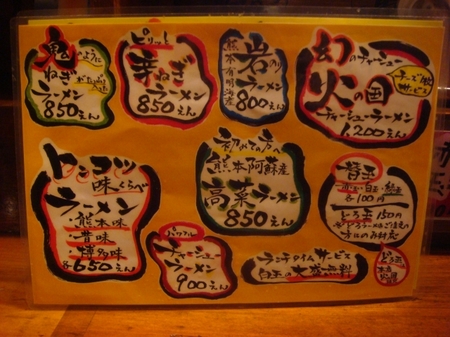 鬼のように
ねぎ
ラーメン
850えん
ピリッと
辛ねぎ
ラーメン
850えん
熊本有明海産
岩のり
ラーメン
800えん
幻のチャーシュー
火の国
チャーシューラーメン
1,200えん
トンコツ
味くらべ
ラーメン
・熊本味
・昔味
・博多味
各650えん
初めての方へ
熊本阿蘇産
高菜ラーメン
850えん
チャーシュー
ラーメン
900えん
替玉
各100円
とろ玉 150円
ランチタイムサービス
大盛無料
とろ玉